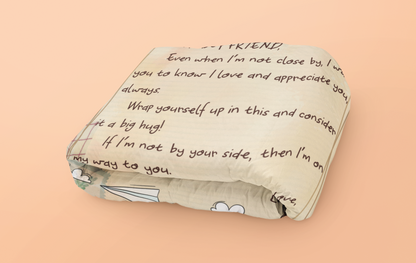 FRIEND,
Even when I'm not close by, I
you to know I love and appreciate you
always.
Wrap yourself up in this and consider
it a big hug!
If I'm not by your side, then I'm on
my way to you.
Love,